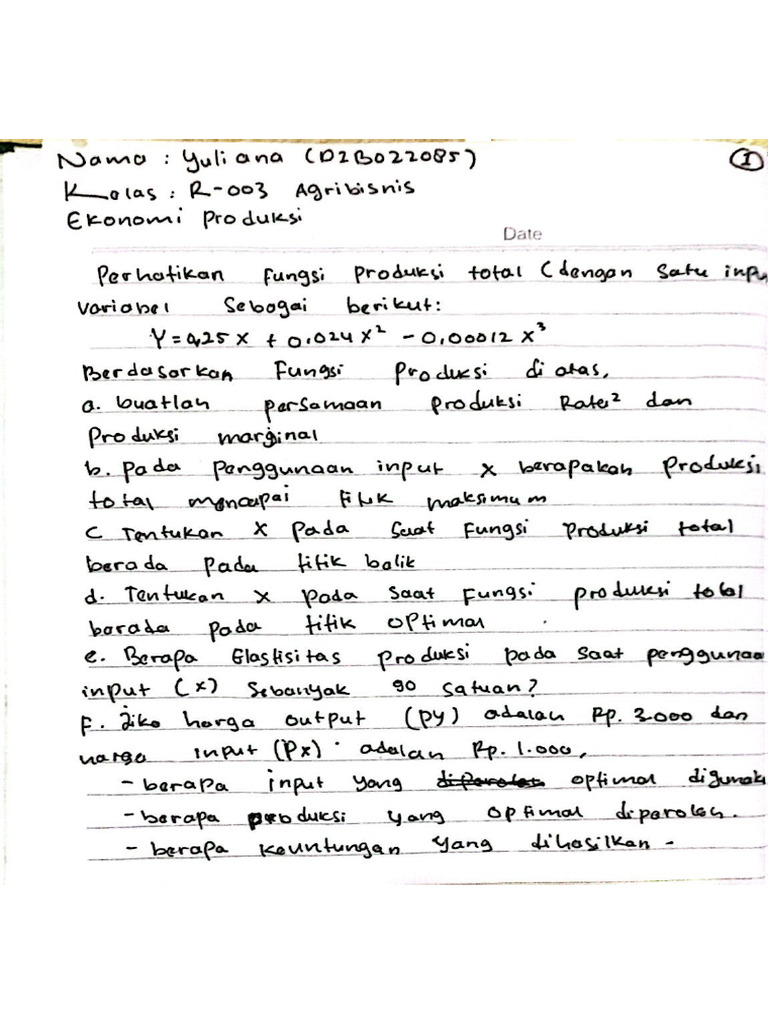 Nama : Yuliana (D2B022085)
①
Kelas : R-003 Agribisnis
Ekonomi Produksi
Date
Perhatikan fungsi produksi total (dengan satu inpu
variabel sebagai berikut:
Y = 0,25 X + 0.024 X² - 0,00012 X³
Berdasarkan Fungsi Produksi di atas,
a. buatlah persamaan produksi Rata² dan
Produksi marginal
b. pada penggunaan input x berapakah produksi
total mencapai titik maksimum
c Tentukan X pada saat fungsi produksi total
berada pada titik balik
d. Tentukan x pada saat fungsi produksi total
berada pada titik optimal
e. Berapa Elastisitas produksi pada saat penggunaa
input (x) sebanyak 90 satuan?
F. Jika harga output (py) adalah Rp. 3.000 dan
harga input (Px) adalah Rp. 1.000,
- berapa input yang diperoleh optimal digunak
- berapa produksi yang optimal diperoleh.
- berapa keuntungan yang dihasilkan -